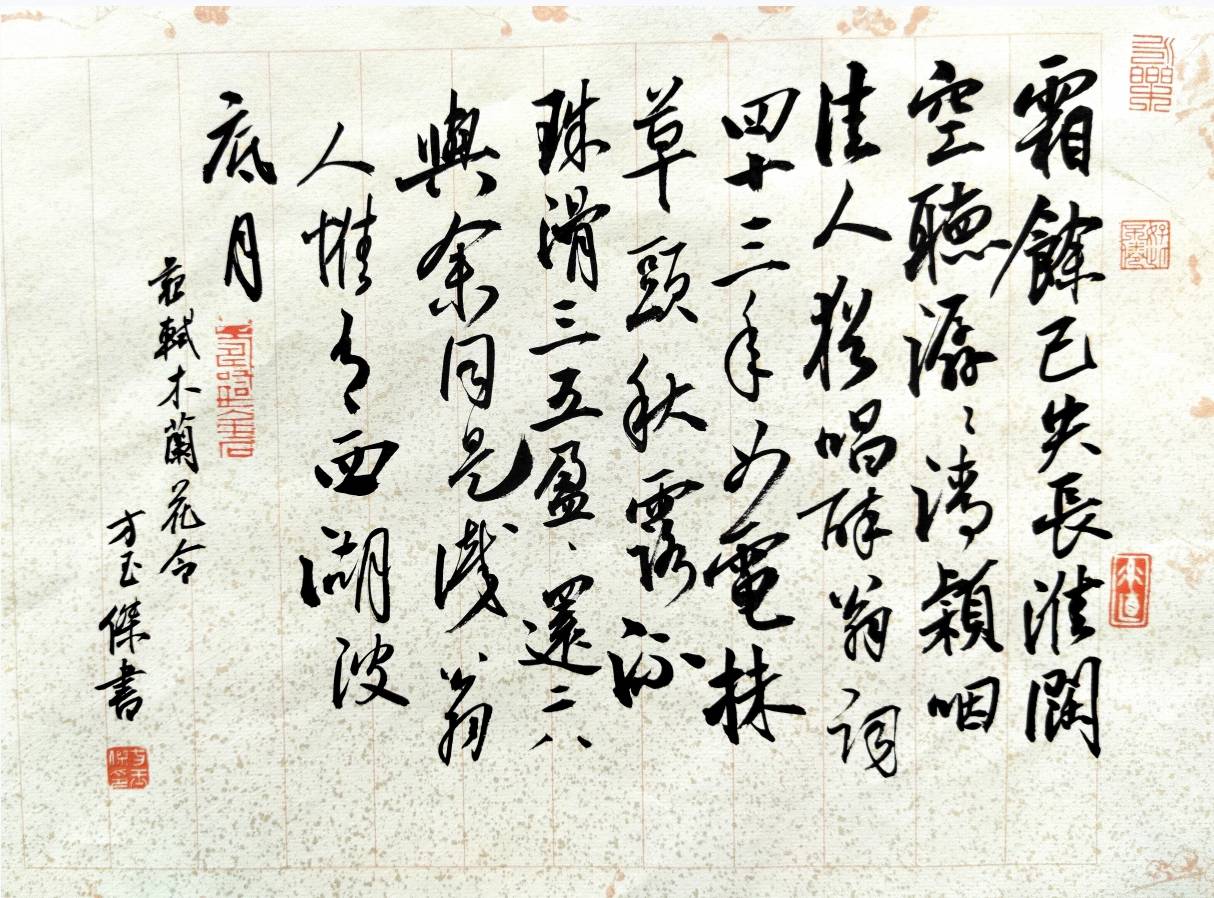 霜餘已失長淮闊
空聽潺〻清潁咽
佳人猶唱醉翁詞
四十三年如電抹
草頭秋露流
珠滑三五盈〻還二八
與余同是識翁
人惟有西湖波
底月
蘇軾木蘭花令
方玉傑書
方玉傑印